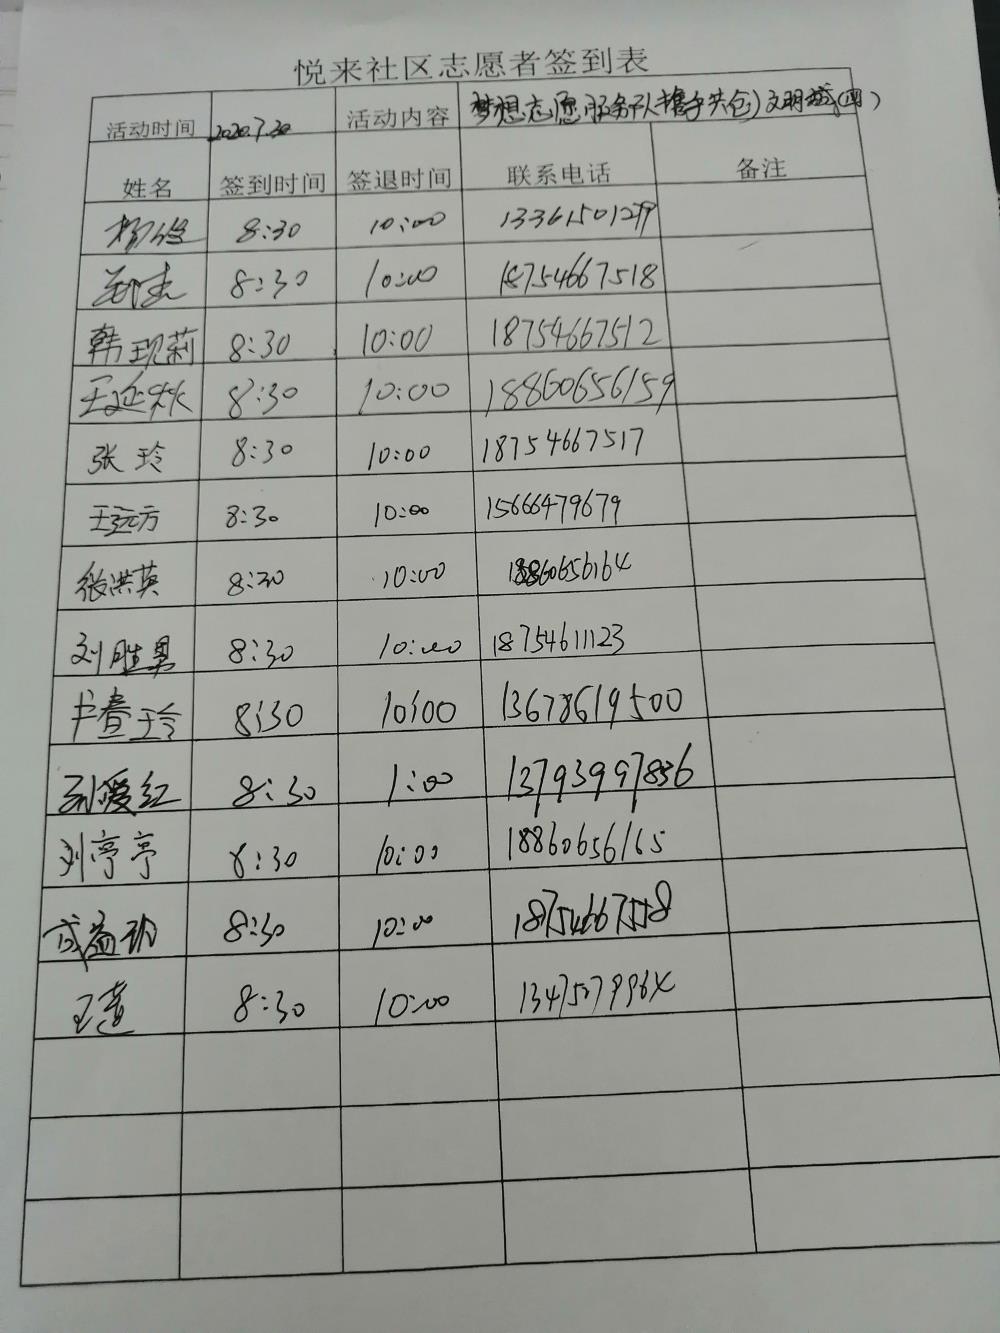 悦来社区志愿者签到表
活动时间 2020.7.30 活动内容 梦想志愿服务队携手共创文明城(四)
姓名 签到时间 签退时间 联系电话 备注
8:30 10:00
8:30 10:00 18754667518
韩现莉 8:30 10:00 18754667512
王延秋 8:30 10:00 18860656159
张玲 8:30 10:00 18754667517
王远方 8:30 10:00 15666479679
张洪英 8:30 10:00 18860656164
刘胜男 8:30 10:00 18754611123
卢春玲 8:30 10:00 13678619500
孙爱红 8:30 1:00 13793997836
刘亭亭 8:30 10:00 18860656165
8:30 10:00
王莲 8:30 10:00 13475279964